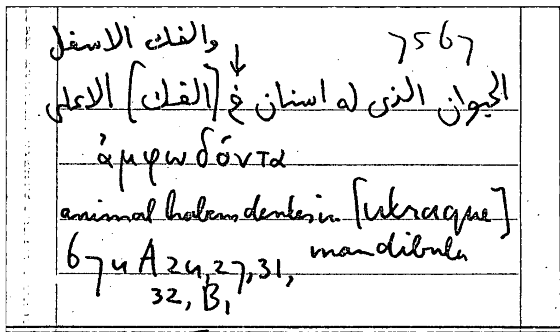 7567
والفك الاسفل
الحيوان الذى له اسنان فى [الفك] الاعلى
ἀμφωδόντα
animal habens dentes in [utraque]
mandibula
674 A 24, 27, 31,
32, B,